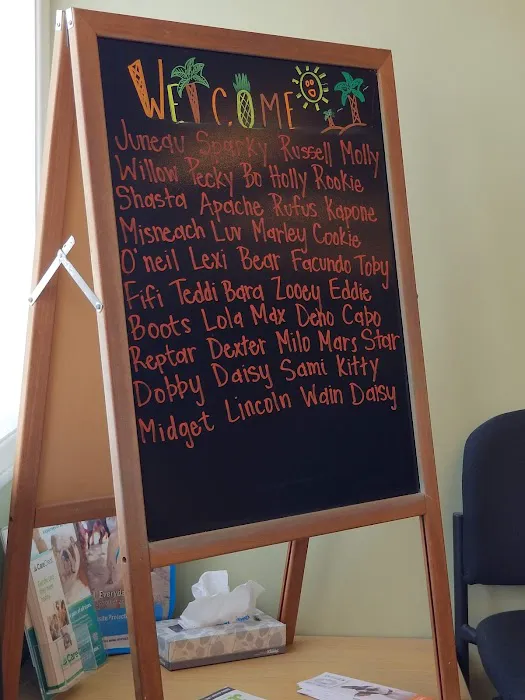 WELCOME
Juneau Sparky Russell Molly
Willow Pecky Bo Holly Rookie
Shasta Apache Rufus Kapone
Misneach Luv Marley Cookie
O'neil Lexi Bear Facundo Toby
Fifi Teddi Bara Zooey Eddie
Boots Lola Max Deho Cabo
Reptar Dexter Milo Mars Star
Dobby Daisy Sami Kitty
Midget Lincoln Wain Daisy
CareCredit